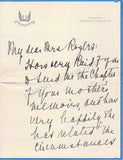 My dear Mrs. Rogers:
How very kind of you
to send me the Chapter
of your mother's
memoirs, and how
very happily she
has related the
circumstances